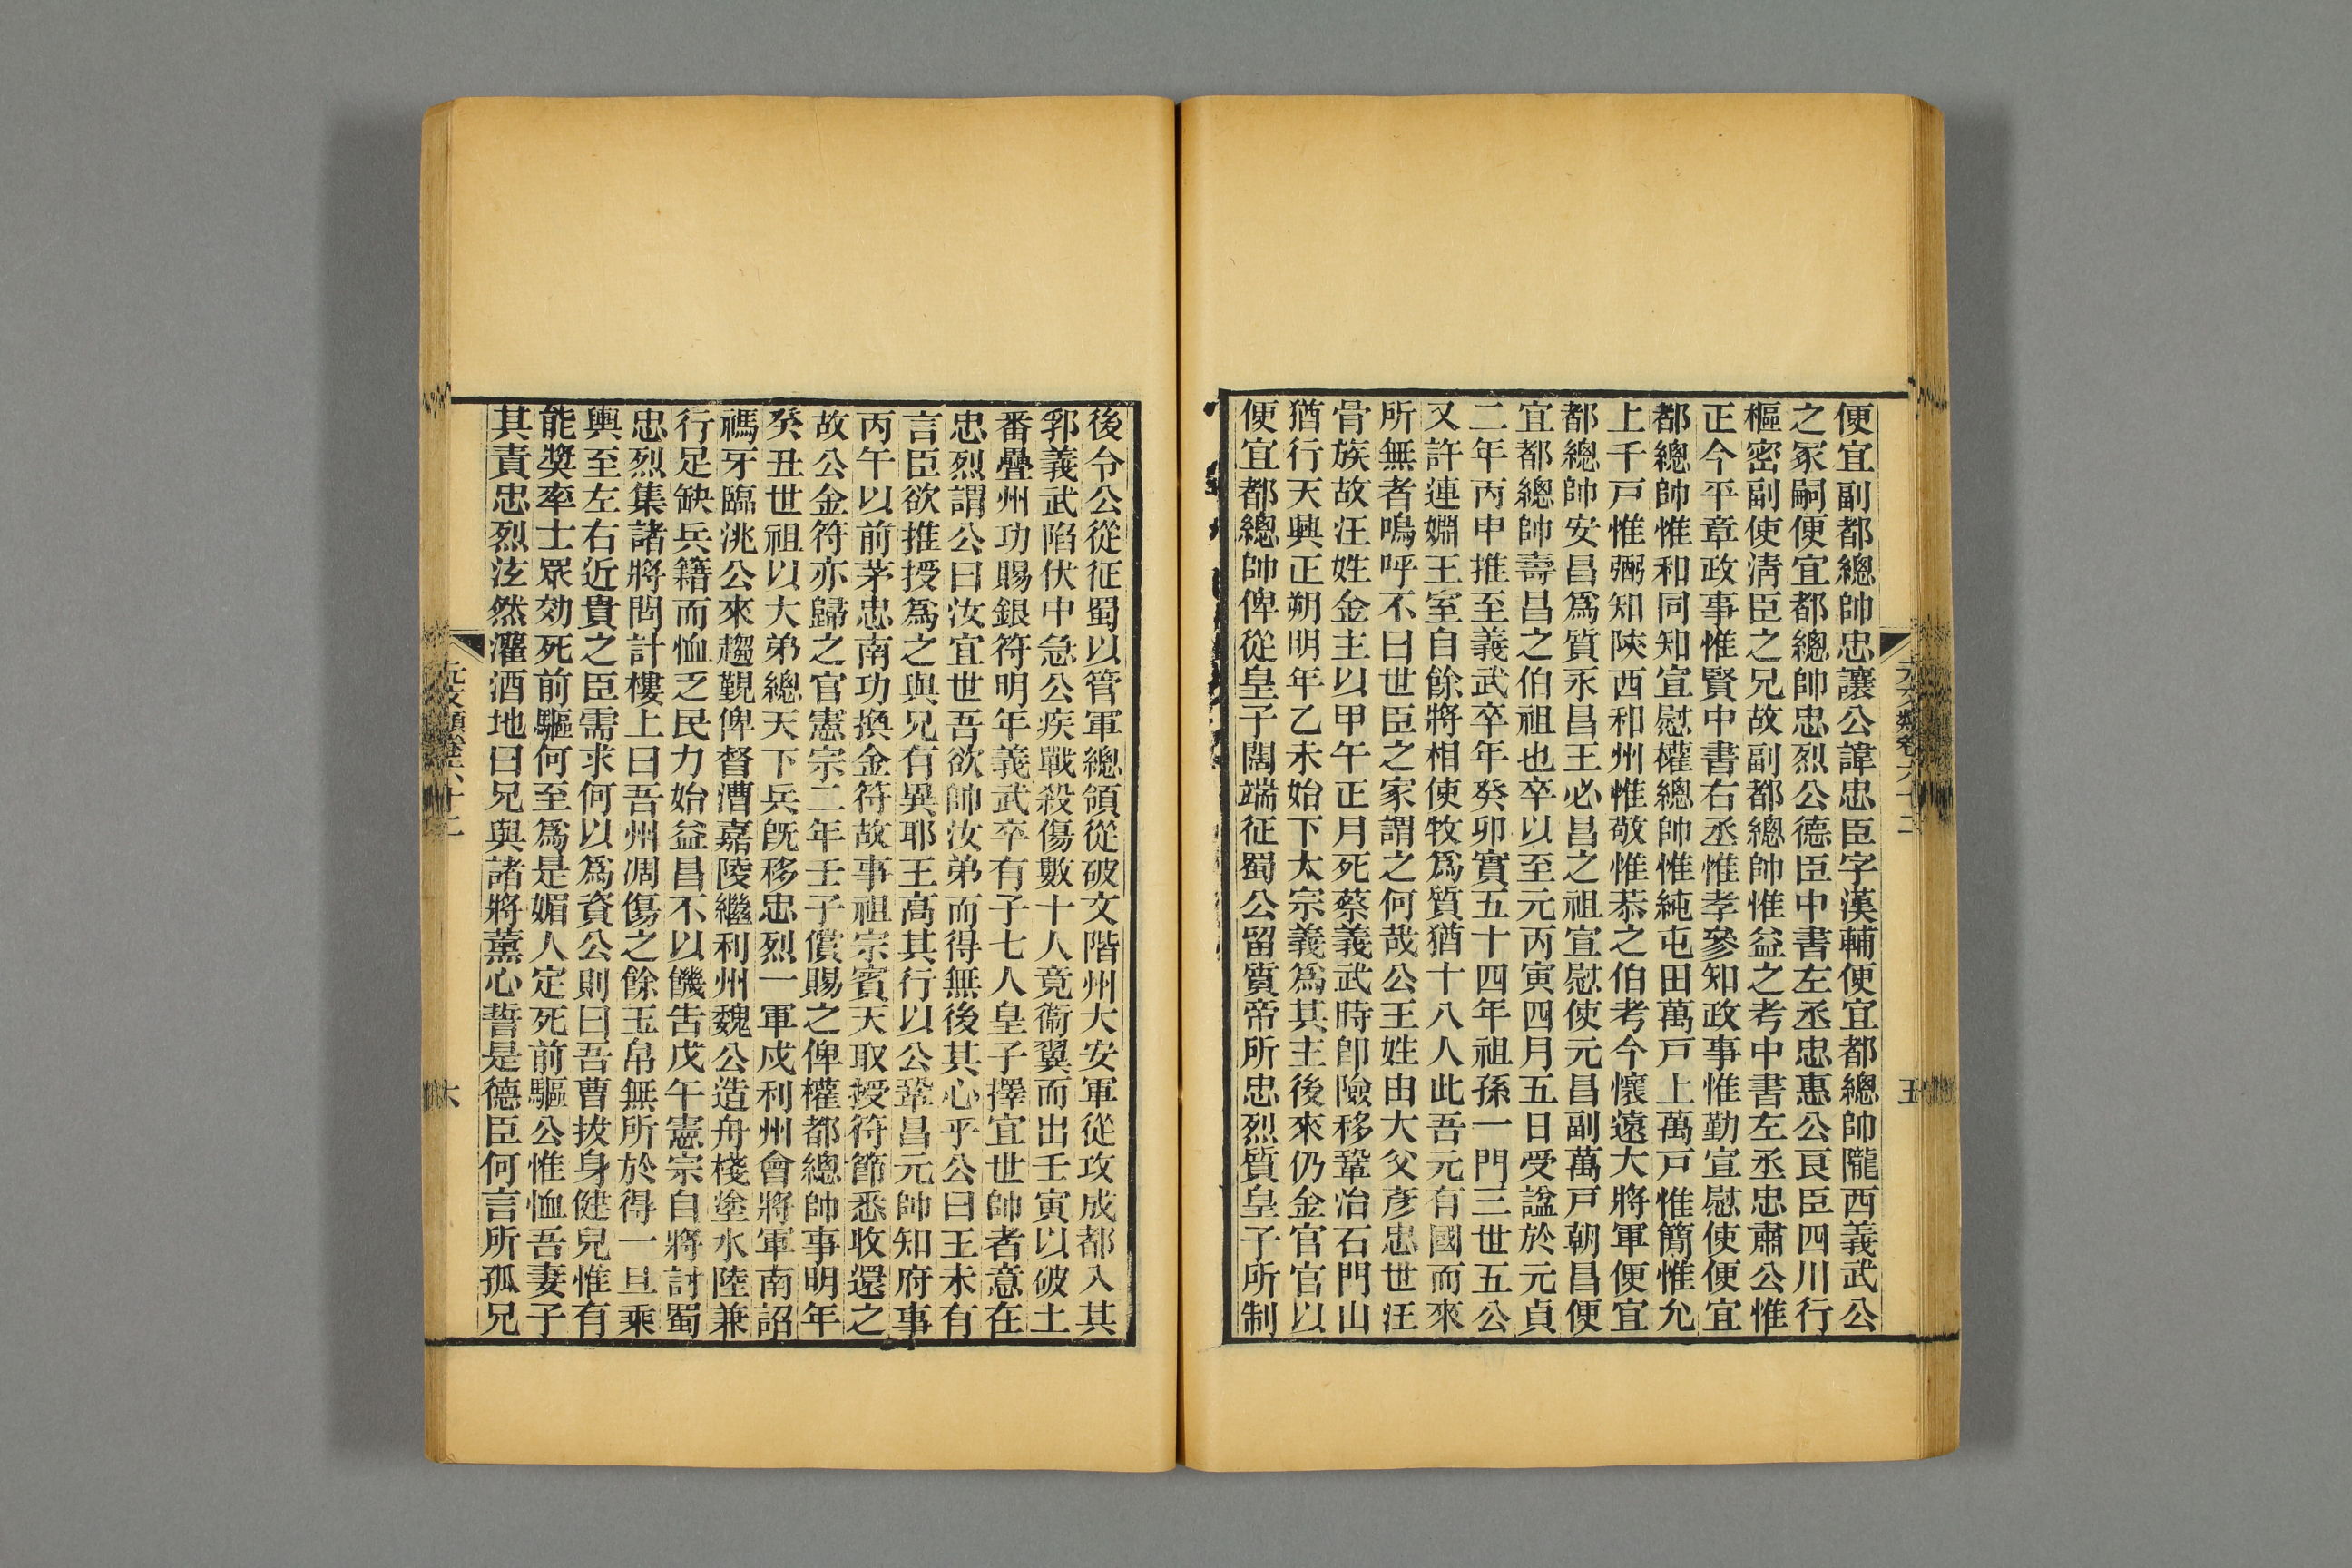 便宜副都總帥忠讓公諱忠臣字漢輔便宜都總帥隴西義武公
之冢嗣便宜都總帥忠烈公德臣中書左丞忠惠公良臣四川行
樞密副使淸臣之兄故副都總帥惟益之考中書左丞忠肅公惟
正今平章政事惟賢中書右丞惟孝參知政事惟勤宣慰使便宜
都總帥惟和同知宣慰權總帥惟純屯田萬戸上萬戸惟簡惟允
上千戸惟弼知陝西和州惟敬惟恭之伯考今懷遠大將軍便宜
都總帥安昌爲質永昌王必昌之祖宣慰使元昌副萬戸朝昌便
宜都總帥壽昌之伯祖也卒以至元丙寅四月五日受諡於元貞
二年丙申推至義武卒年癸卯實五十四年祖孫一門三世五公
又許連婣王室自餘將相使牧爲質猶十八人此吾元有國而來
所無者嗚呼不曰世臣之家謂之何哉公王姓由大父彥忠世汪
骨族故汪姓金主以甲午正月死蔡義武時卽險移鞏治石門山
猶行天興正朔明年乙未始下太宗義爲其主後來仍金官官以
便宜都總帥俾從皇子闊端征蜀公留質帝所忠烈質皇子所制
元文類卷六十二
五
後令公從征蜀以管軍總領從破文階州大安軍從攻成都入其
郛義武陷伏中急公疾戰殺傷數十人竟衞翼而出壬寅以破土
番疊州功賜銀符明年義武卒有子七人皇子擇宜世帥者意在
忠烈謂公曰汝宜世吾欲帥汝弟而得無後其心乎公曰王未有
言臣欲推授爲之與兄有異耶王高其行以公鞏昌元帥知府事
丙午以前茅忠南功換金符故事祖宗賓天取授符節悉收還之
故公金符亦歸之官憲宗二年壬子償賜之俾權都總帥事明年
癸丑世祖以大弟總天下兵旣移忠烈一軍戍利州會將軍南詔
禡牙臨洮公來趨覲俾督漕嘉陵繼利州魏公造舟棧塗水陸兼
行足缺兵籍而恤乏民力始益昌不以饑告戊午憲宗自將討蜀
忠烈集諸將問計樓上曰吾州凋傷之餘玉帛無所於得一旦乘
輿至左右近貴之臣需求何以爲資公則曰吾曹拔身健兒惟有
能獎率士眾効死前驅何至爲是媚人定死前驅公惟恤吾妻子
其責忠烈泫然灌酒地曰兄與諸將薰心誓是德臣何言所孤兄
元文類卷六十二
六